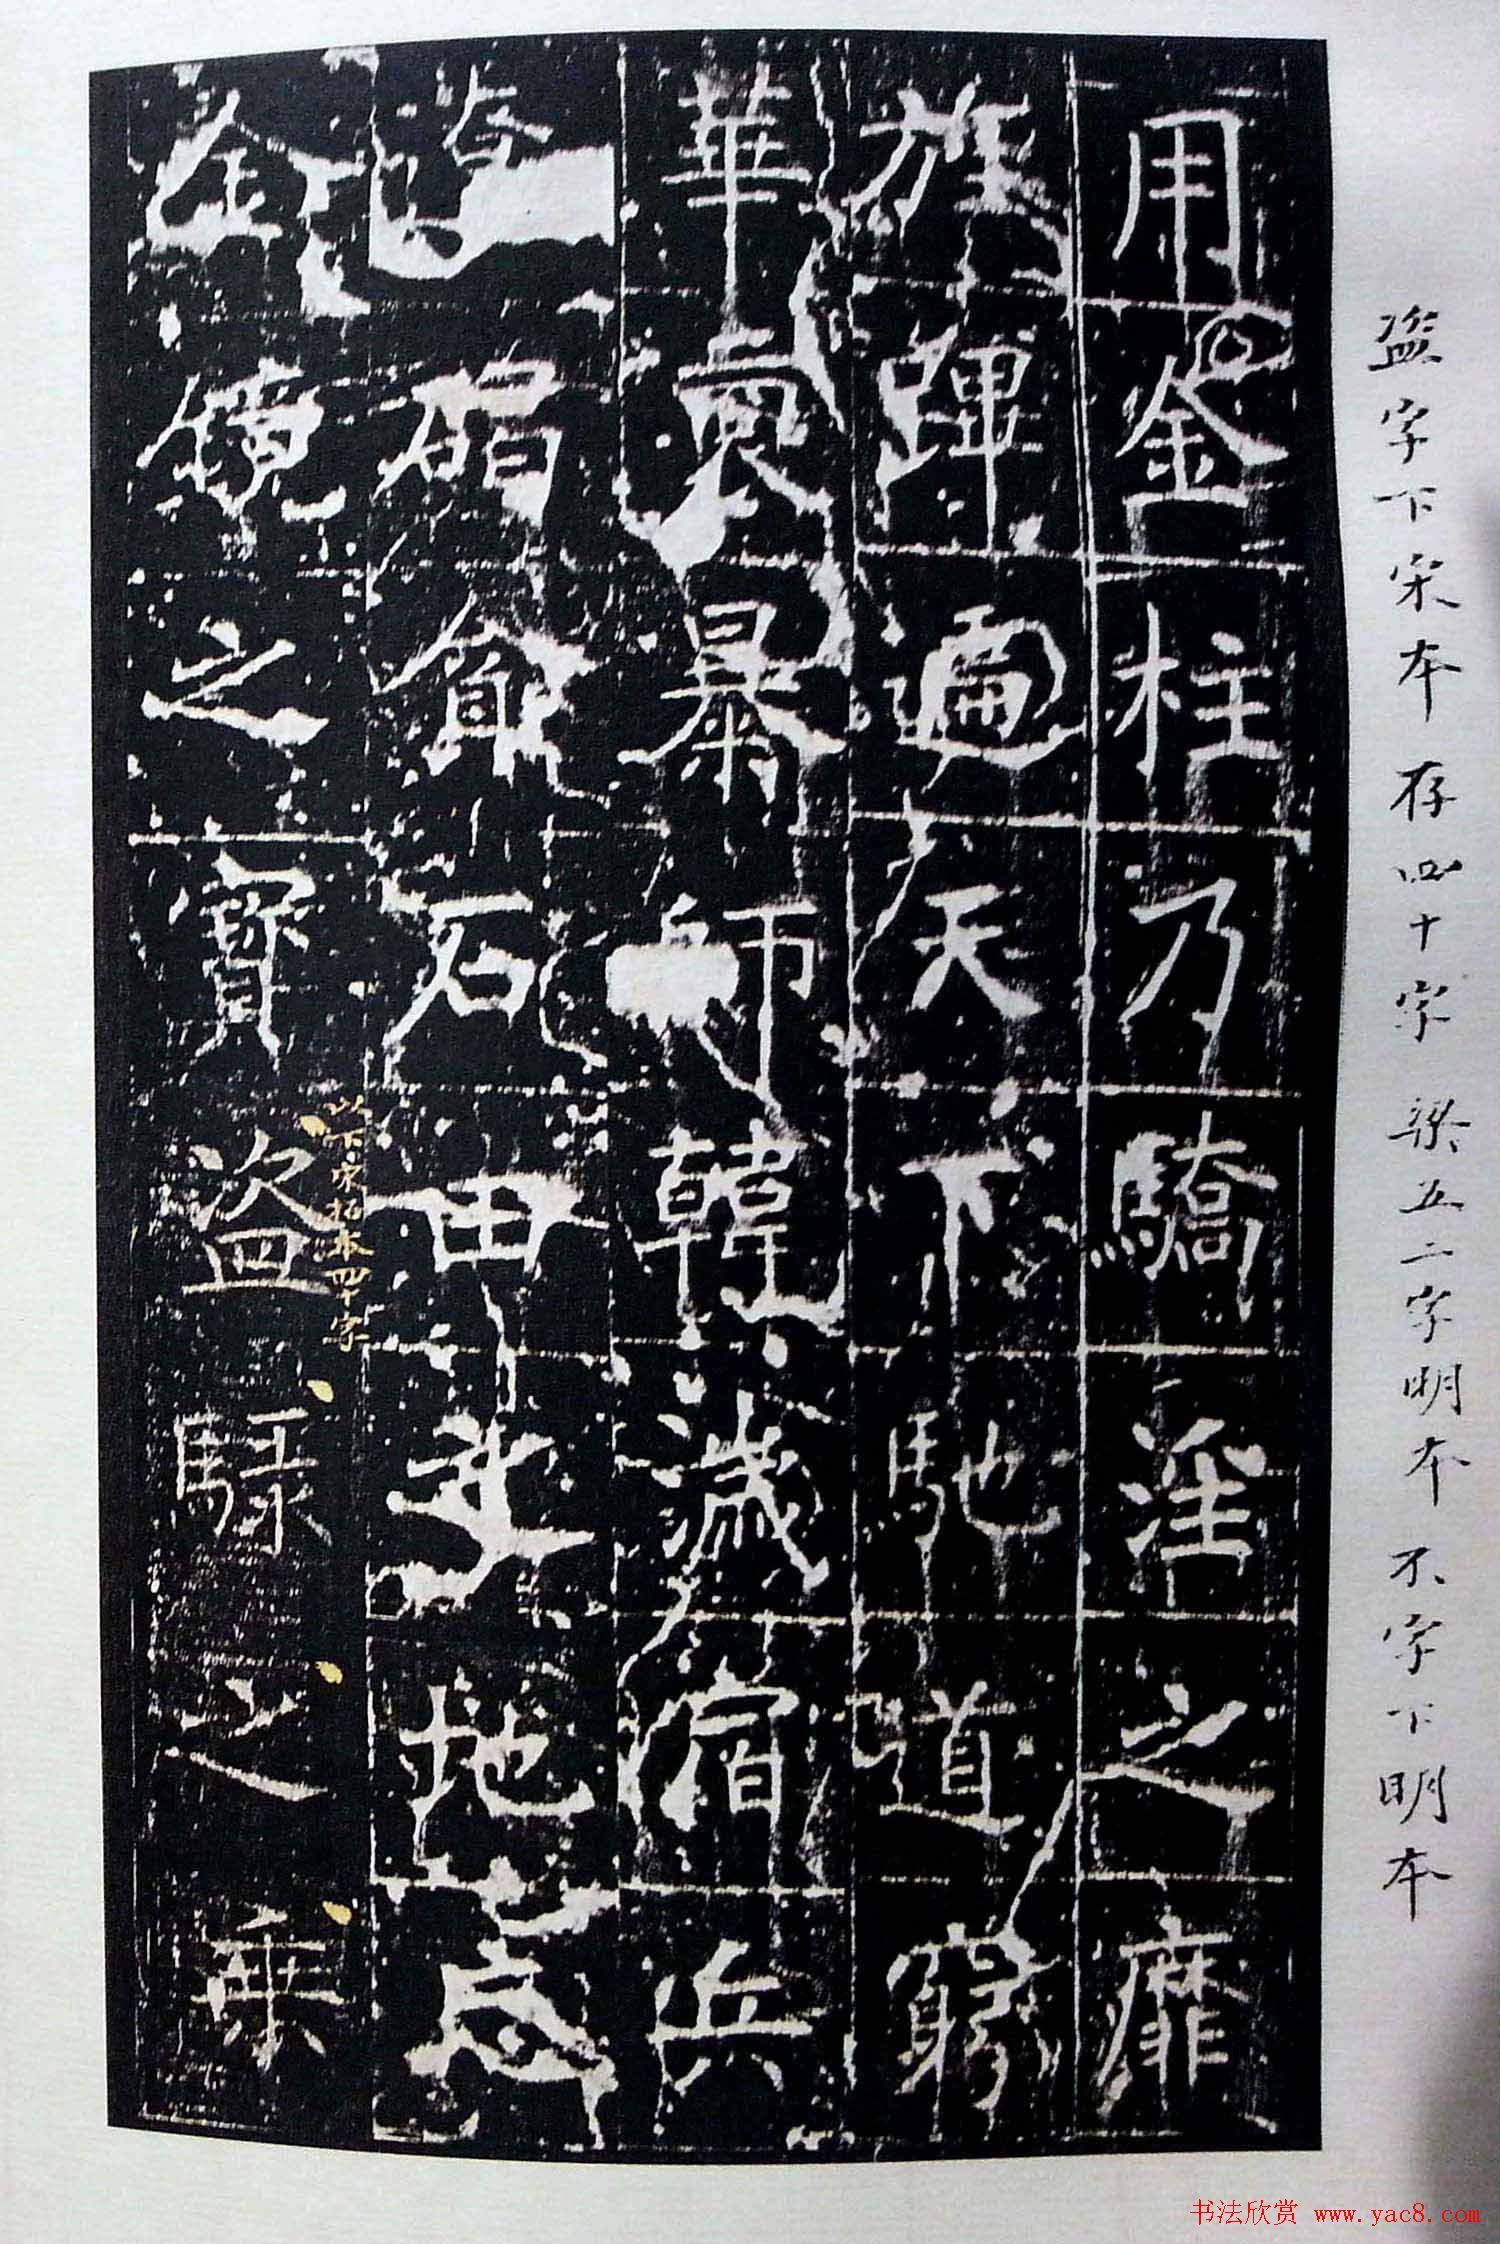 盜字下宋本存四十字 梁五二字明本 不字下明本
用金柱乃驕淫之靡
旌蹕遍天下馳道窮
華裔暴師韓濊宿兵
碣石田地忘
金鏡之寶盜騄之乘
以下宋拓本四十字
书法欣赏 www.yac8.com